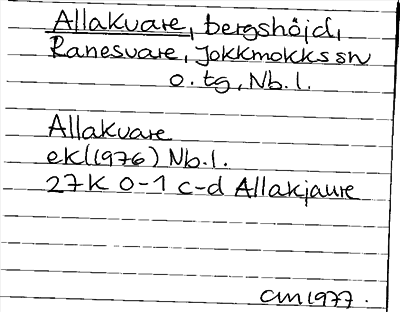 Allakvare, bergshöjd,
Ranesvare, Jokkmokks sn
o. tg, Nb. l.
Allakvare
ek (1976) Nb. l.
27K 0-1 c-d Allakjaure
CM 1977.